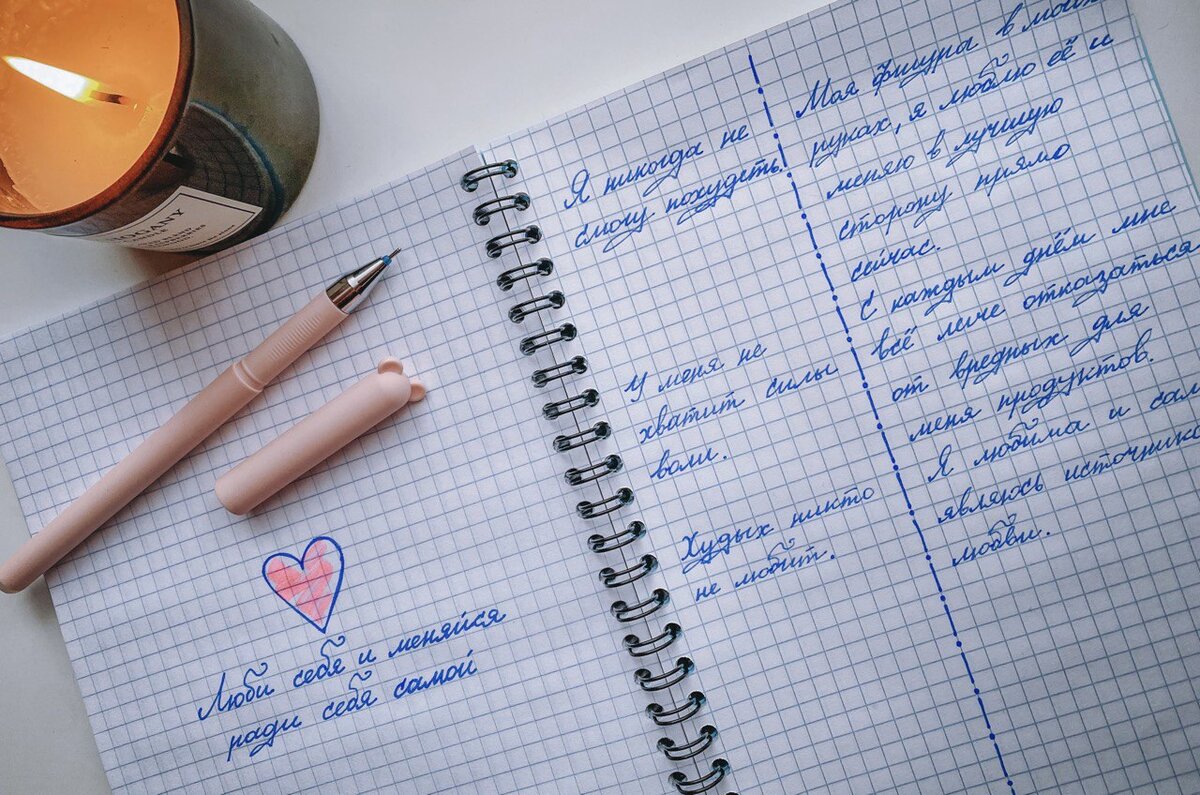 OGANY
Люби себя и меняйся
ради себя самой
Я никогда не
смогу похудеть.
У меня не
хватит силы
воли.
Худых никто
не любит.
Моя фигура в моих
руках, я люблю её и
меняю в лучшую
сторону прямо
сейчас.
С каждым днём мне
всё легче отказаться
от вредных для
меня продуктов.
Я любима и сама
являюсь источнико
любви.